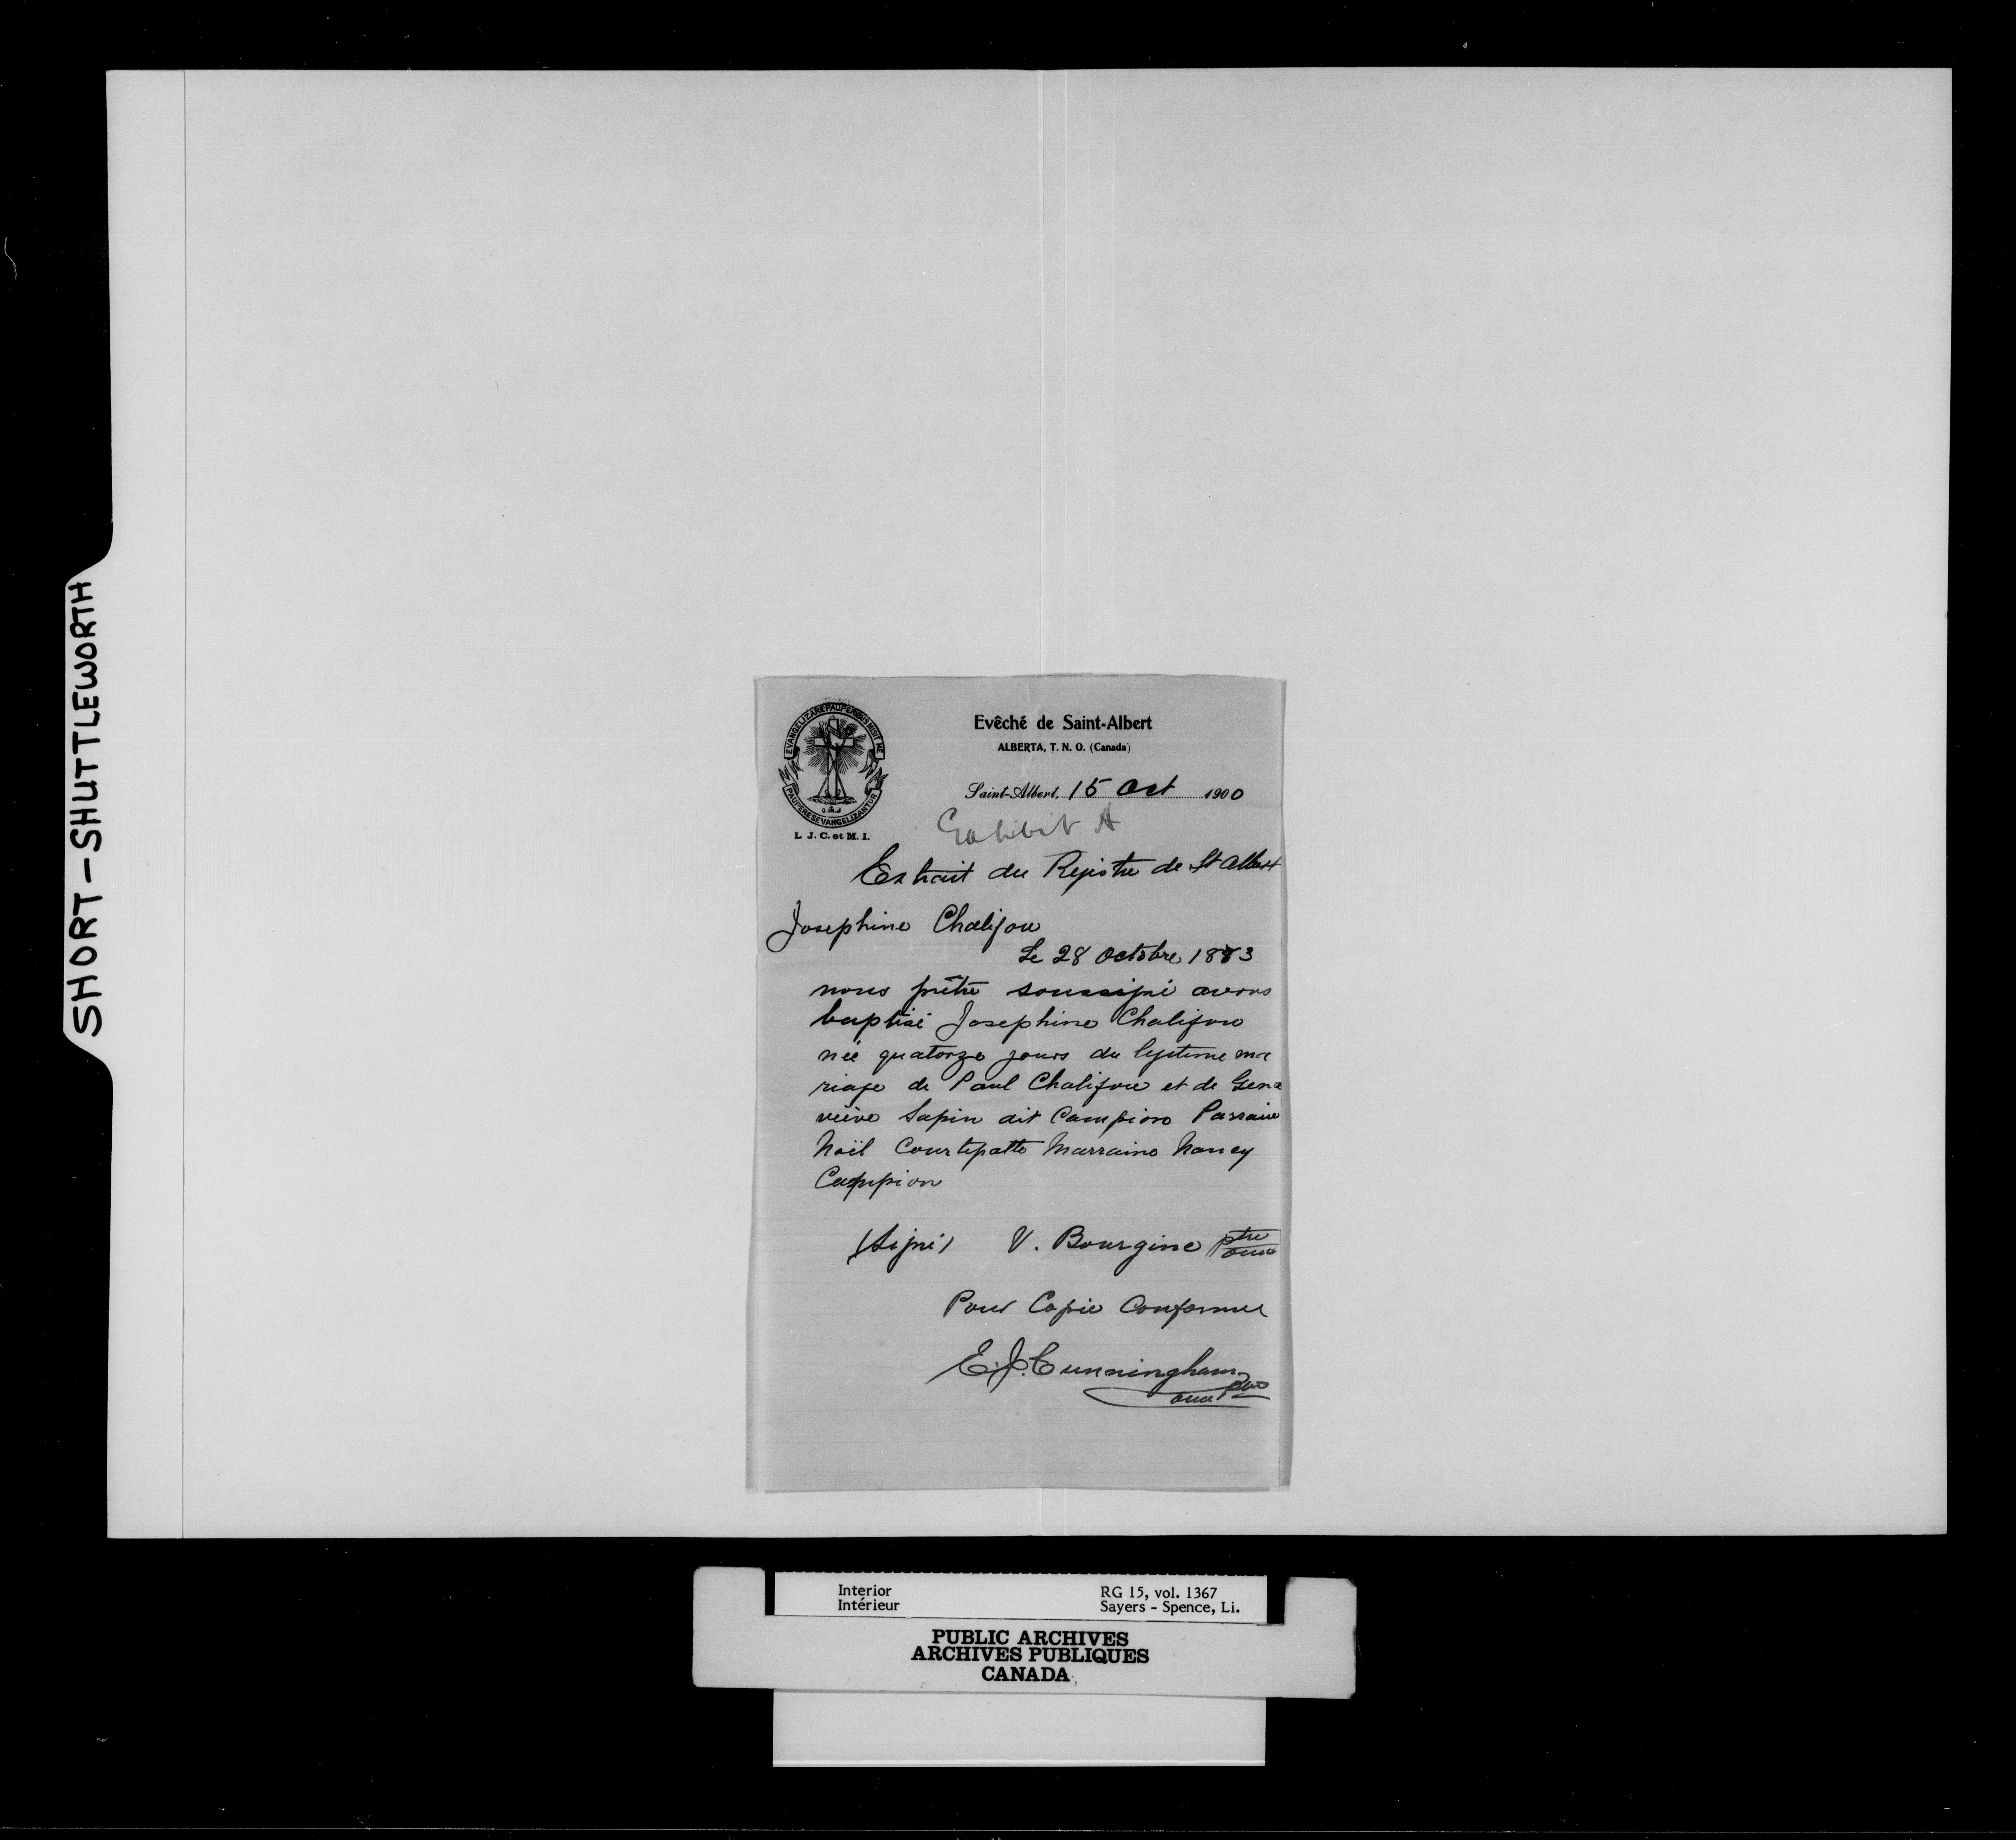 SHORT-SHUTTLEWORTH
EVANGELIZARE PAUPERIBUS MISIT ME
PAUPERES EVANGELIZANTUR
O.M.I
L. J. C. et M. I.
Evêché de Saint-Albert
ALBERTA, T. N. O. (Canada)
Saint-Albert, 15 Oct 1900
Exhibit A
Extrait du Registre de St Albert
Josephine Chalifou
Le 28 Octobre 1883
nous prêtre soussigné avons
baptisé Josephine Chalifou
née quatorze jours du legitime ma
riage de Paul Chalifou et de Gene
viève Sapin dit Campion Parrain
Noël Courtepatte Marraine Nancy
Campion
(Signé) V. Bourgine ptre
omi
Pour Copie Conforme
E.J. Cunningham ptre
omi
Interior
Intérieur
RG 15, vol. 1367
Sayers - Spence, Li.
PUBLIC ARCHIVES
ARCHIVES PUBLIQUES
CANADA